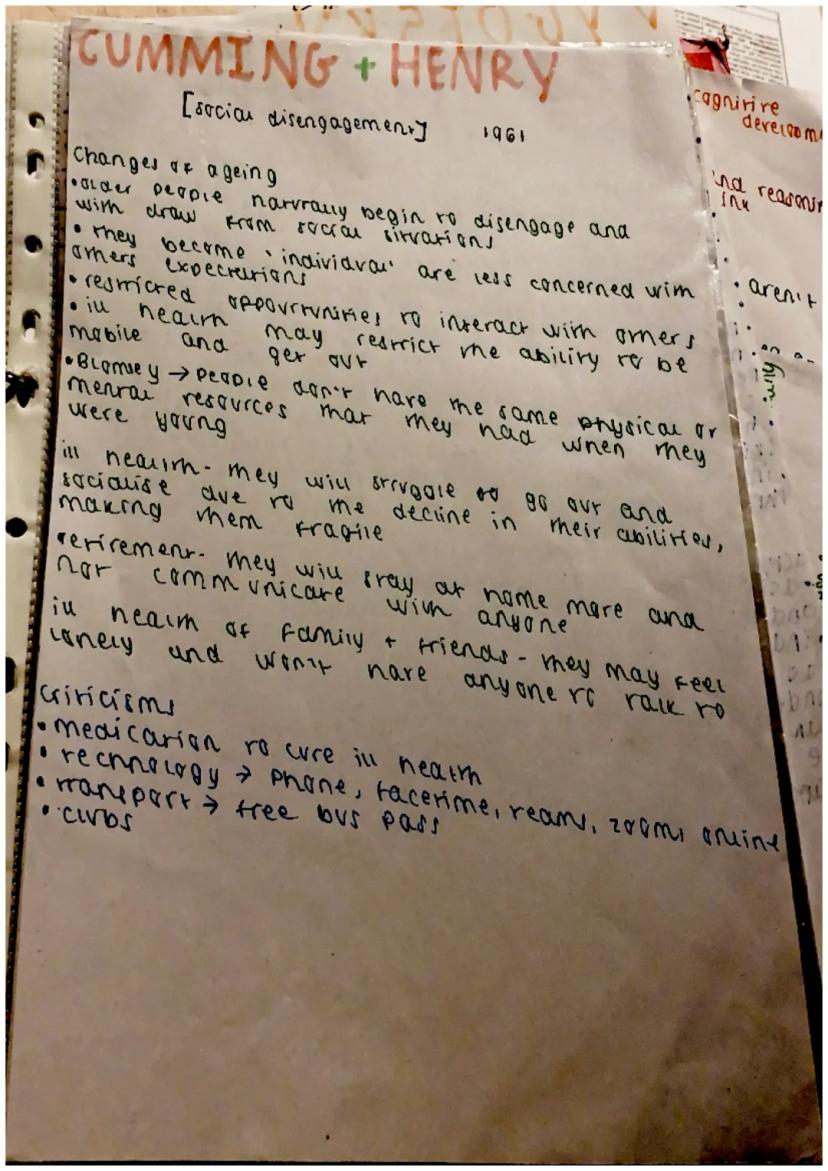 CUMMING + HENRY
[social disengagement] 1961
Changes of ageing
• older people naturally begin to disengage and
with draw from social situations
• they become 'individual' are less concerned with
others expectations
• restricted opportunities to interact with others
• ill health may restrict the ability to be
mobile and get out
• Bromley → people don't have the same physical or
mental resources that they had when they
were young
ill health - they will struggle to go out and
socialise due to the decline in their abilities,
making them fragile
retirement - they will stay at home more and
not communicate with anyone
ill health of family + friends - they may feel
lonely and won't have anyone to talk to
Criticisms
• medication to cure ill health
• technology → phone, facetime, teams, zooms online
• transport → free bus pass
• clubs
cognitive
developm
and reasonin
• aren't